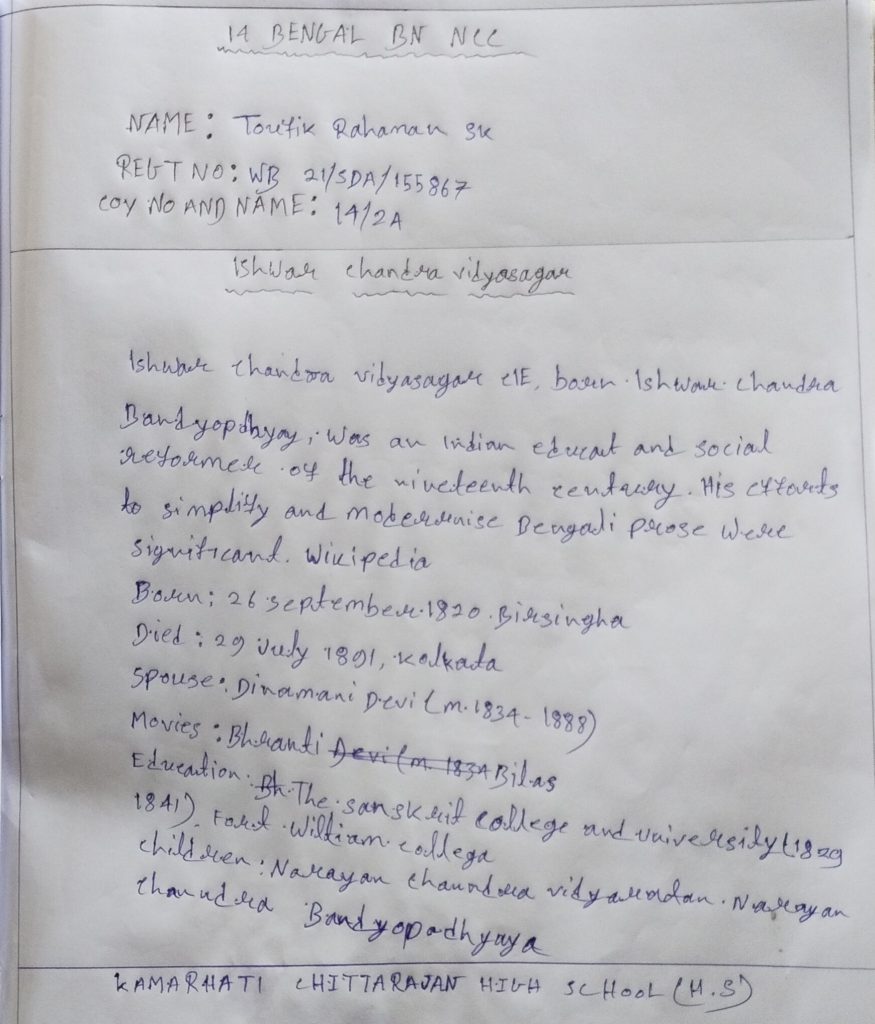 14 BENGAL BN NCC
NAME: Toufik Rahaman SK
REGT NO: WB 21/SDA/155867
COY NO AND NAME: 14/2A
Ishwar chandra vidyasagar
Ishwar chandra vidyasagar CIE, born Ishwar chandra
Bandyopdhyay, was an Indian educat and social
reformer of the nineteenth century. His efforts
to simplify and modernise Bengali prose were
significand. Wikipedia
Born: 26 september 1820. Birsingha
Died: 29 July 1891, kolkata
Spouse: Dinamani Devi (m. 1834-1888)
Movies: Bhranti Devi (m. 1834 Bilas
Education: Bh The sanskrit college and university (1829
1841) Fort William college
children: Narayan chaundra vidyaratan. Narayan
chanudra Bandyopadhyaya
KAMARHATI CHITTARAJAN HIGH SCHOOL (H.S)